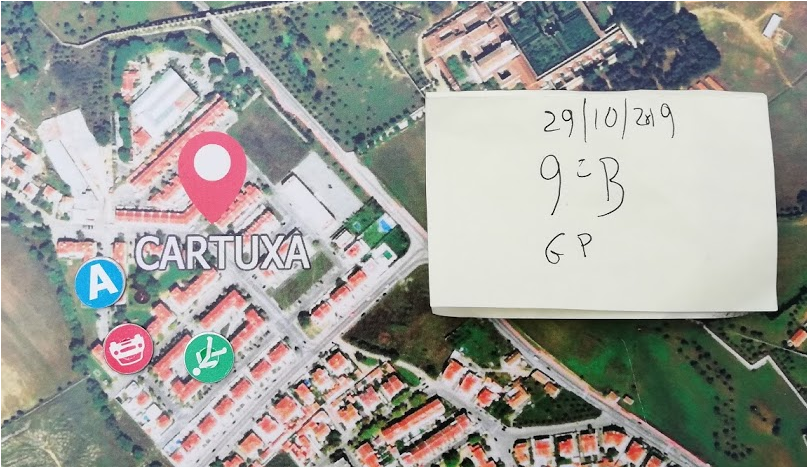 CARTUXA
A
29/10/2019
9=B
GP